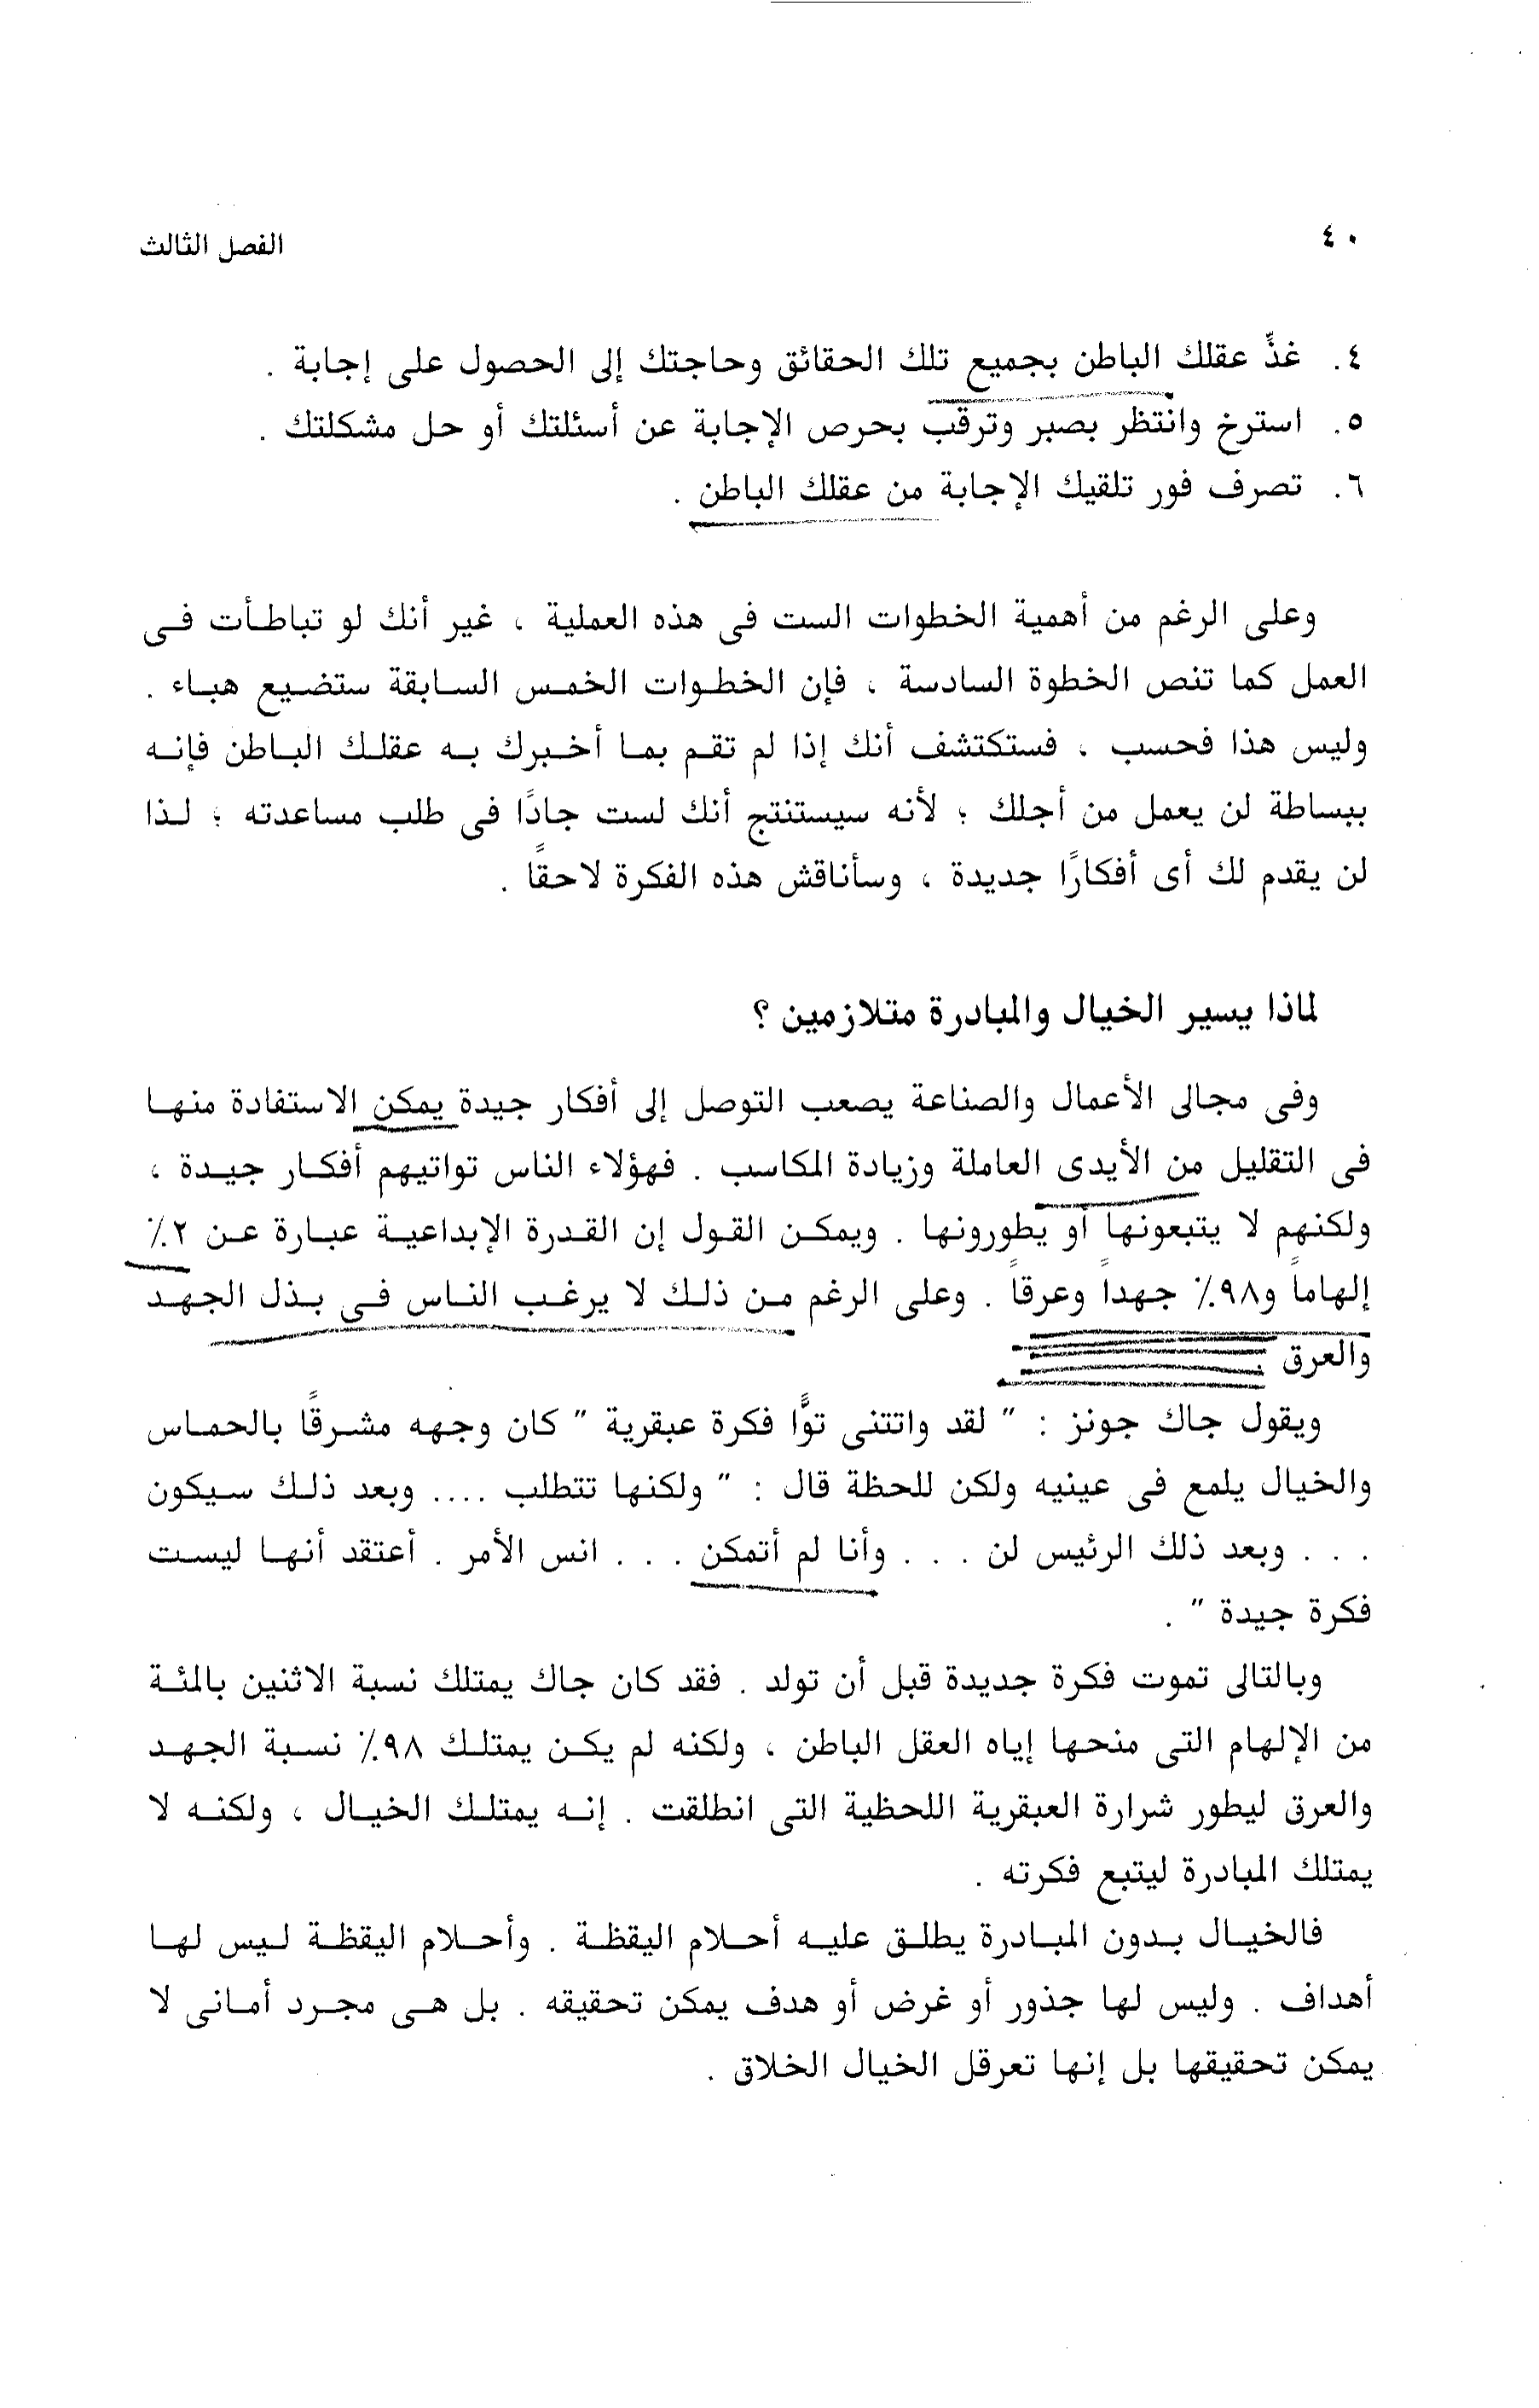 ٤٠
الفصل الثالث
٤. غذِّ عقلك الباطن بجميع تلك الحقائق وحاجتك إلى الحصول على إجابة .
٥. استرخ وانتظر بصبر وترقب بحرص الإجابة عن أسئلتك أو حل مشكلتك .
٦. تصرف فور تلقيك الإجابة من عقلك الباطن .
وعلى الرغم من أهمية الخطوات الست فى هذه العملية ، غير أنك لو تباطأت فى
العمل كما تنص الخطوة السادسة ، فإن الخطوات الخمس السابقة ستضيع هباء .
وليس هذا فحسب ، فستكتشف أنك إذا لم تقم بما أخبرك به عقلك الباطن فإنه
ببساطة لن يعمل من أجلك ؛ لأنه سيستنتج أنك لست جادًا فى طلب مساعدته ؛ لذا
لن يقدم لك أى أفكارًا جديدة ، وسأناقش هذه الفكرة لاحقًا .
لماذا يسير الخيال والمبادرة متلازمين ؟
وفى مجالى الأعمال والصناعة يصعب التوصل إلى أفكار جيدة يمكن الاستفادة منها
فى التقليل من الأيدى العاملة وزيادة المكاسب . فهؤلاء الناس تواتيهم أفكار جيدة ،
ولكنهم لا يتبعونها أو يطورونها . ويمكن القول إن القدرة الإبداعية عبارة عن ٢٪
إلهاماً و٩٨٪ جهداً وعرقاً . وعلى الرغم من ذلك لا يرغب الناس فى بذل الجهد
والعرق .
ويقول جاك جونز : " لقد واتتنى توًّا فكرة عبقرية " كان وجهه مشرقًا بالحماس
والخيال يلمع فى عينيه ولكن للحظة قال : " ولكنها تتطلب .... وبعد ذلك سيكون
. . . وبعد ذلك الرئيس لن . . . وأنا لم أتمكن . . . انس الأمر . أعتقد أنها ليست
فكرة جيدة " .
وبالتالى تموت فكرة جديدة قبل أن تولد . فقد كان جاك يمتلك نسبة الاثنين بالمئة
من الإلهام التى منحها إياه العقل الباطن ، ولكنه لم يكن يمتلك ٩٨٪ نسبة الجهد
والعرق ليطور شرارة العبقرية اللحظية التى انطلقت . إنه يمتلك الخيال ، ولكنه لا
يمتلك المبادرة ليتبع فكرته .
فالخيال بدون المبادرة يطلق عليه أحلام اليقظة . وأحلام اليقظة ليس لها
أهداف . وليس لها جذور أو غرض أو هدف يمكن تحقيقه . بل هى مجرد أمانى لا
يمكن تحقيقها بل إنها تعرقل الخيال الخلاق .